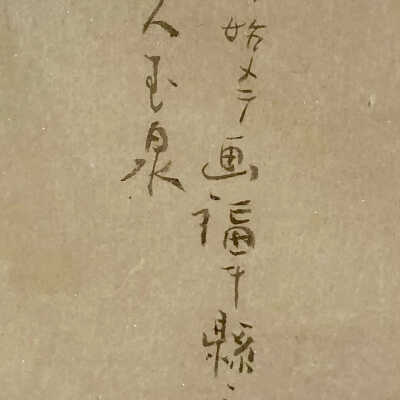 始メテ画福井縣
人玉泉